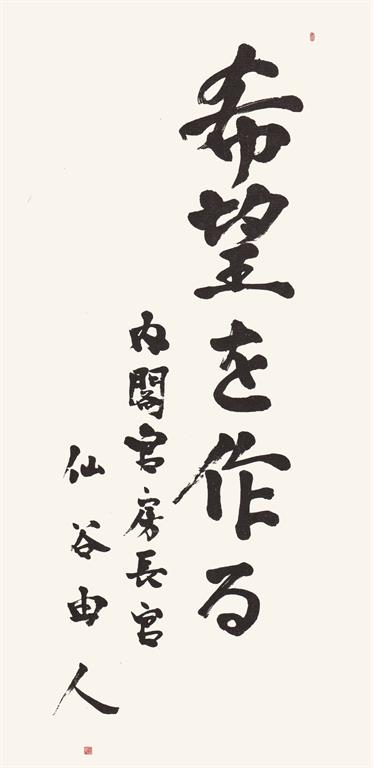 希望を作る
内閣官房長官
仙谷由人